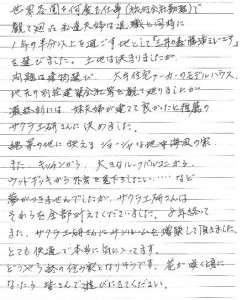 世界各国を何度も仕事(旅行会社勤務)で
観て廻った私達夫婦は退職と同時に
1年の半分以上を過ごす地として「
を選びました。土地は決まりましたが、
問題は建物選び。大手住宅メーカーのモデルハウス、
地元の別荘建築会社等を観て廻りましたが
最終的には妹夫婦が建てて良かったと推薦の
サクラ工研さんに決めました。
絶景の地に映える ジョージャは地中海風の家
また、キッチンから、大きなルーフバルコニーから、
ウッドデッキから外を見下ろしたい……など
夢がつきませんでしたが、サクラ工研さんは
それらを全部叶えてくださいました。
また、サクラ工研さんにサンルームも増築して頂きました。
とても快適で本当に気に入ってます。
どうやら終の住み家となりそうです。花が咲く頃に
なったら皆さんで遊びにきてください。